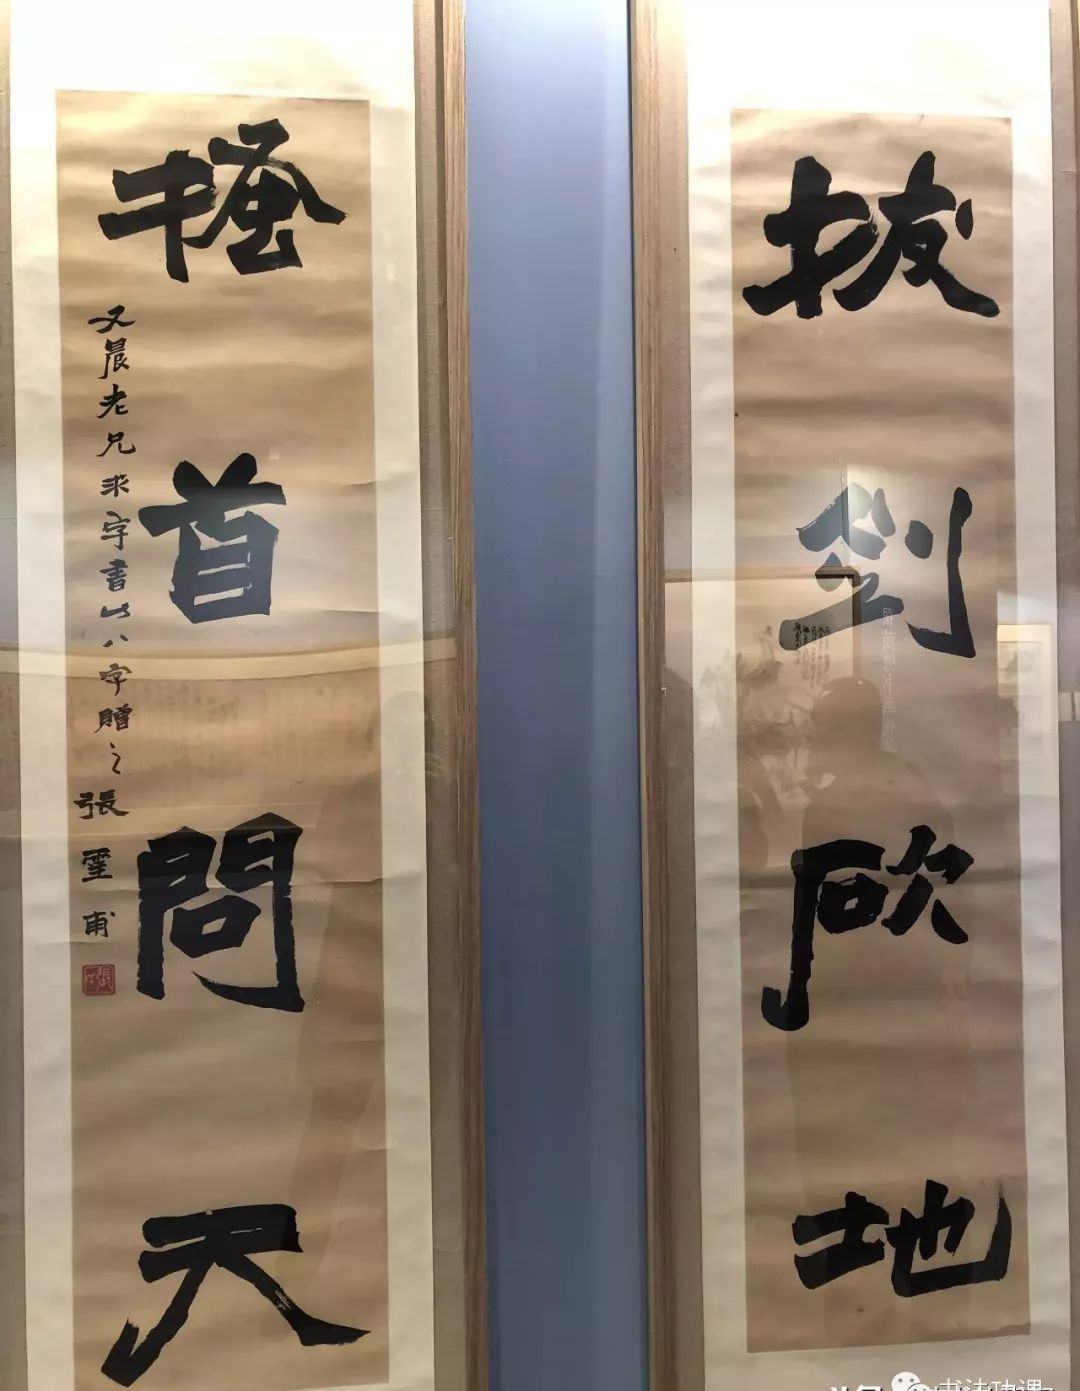 拔劍砍地
搔首問天
文晨老兄求字書此八字贈之張堊甫
书法功课